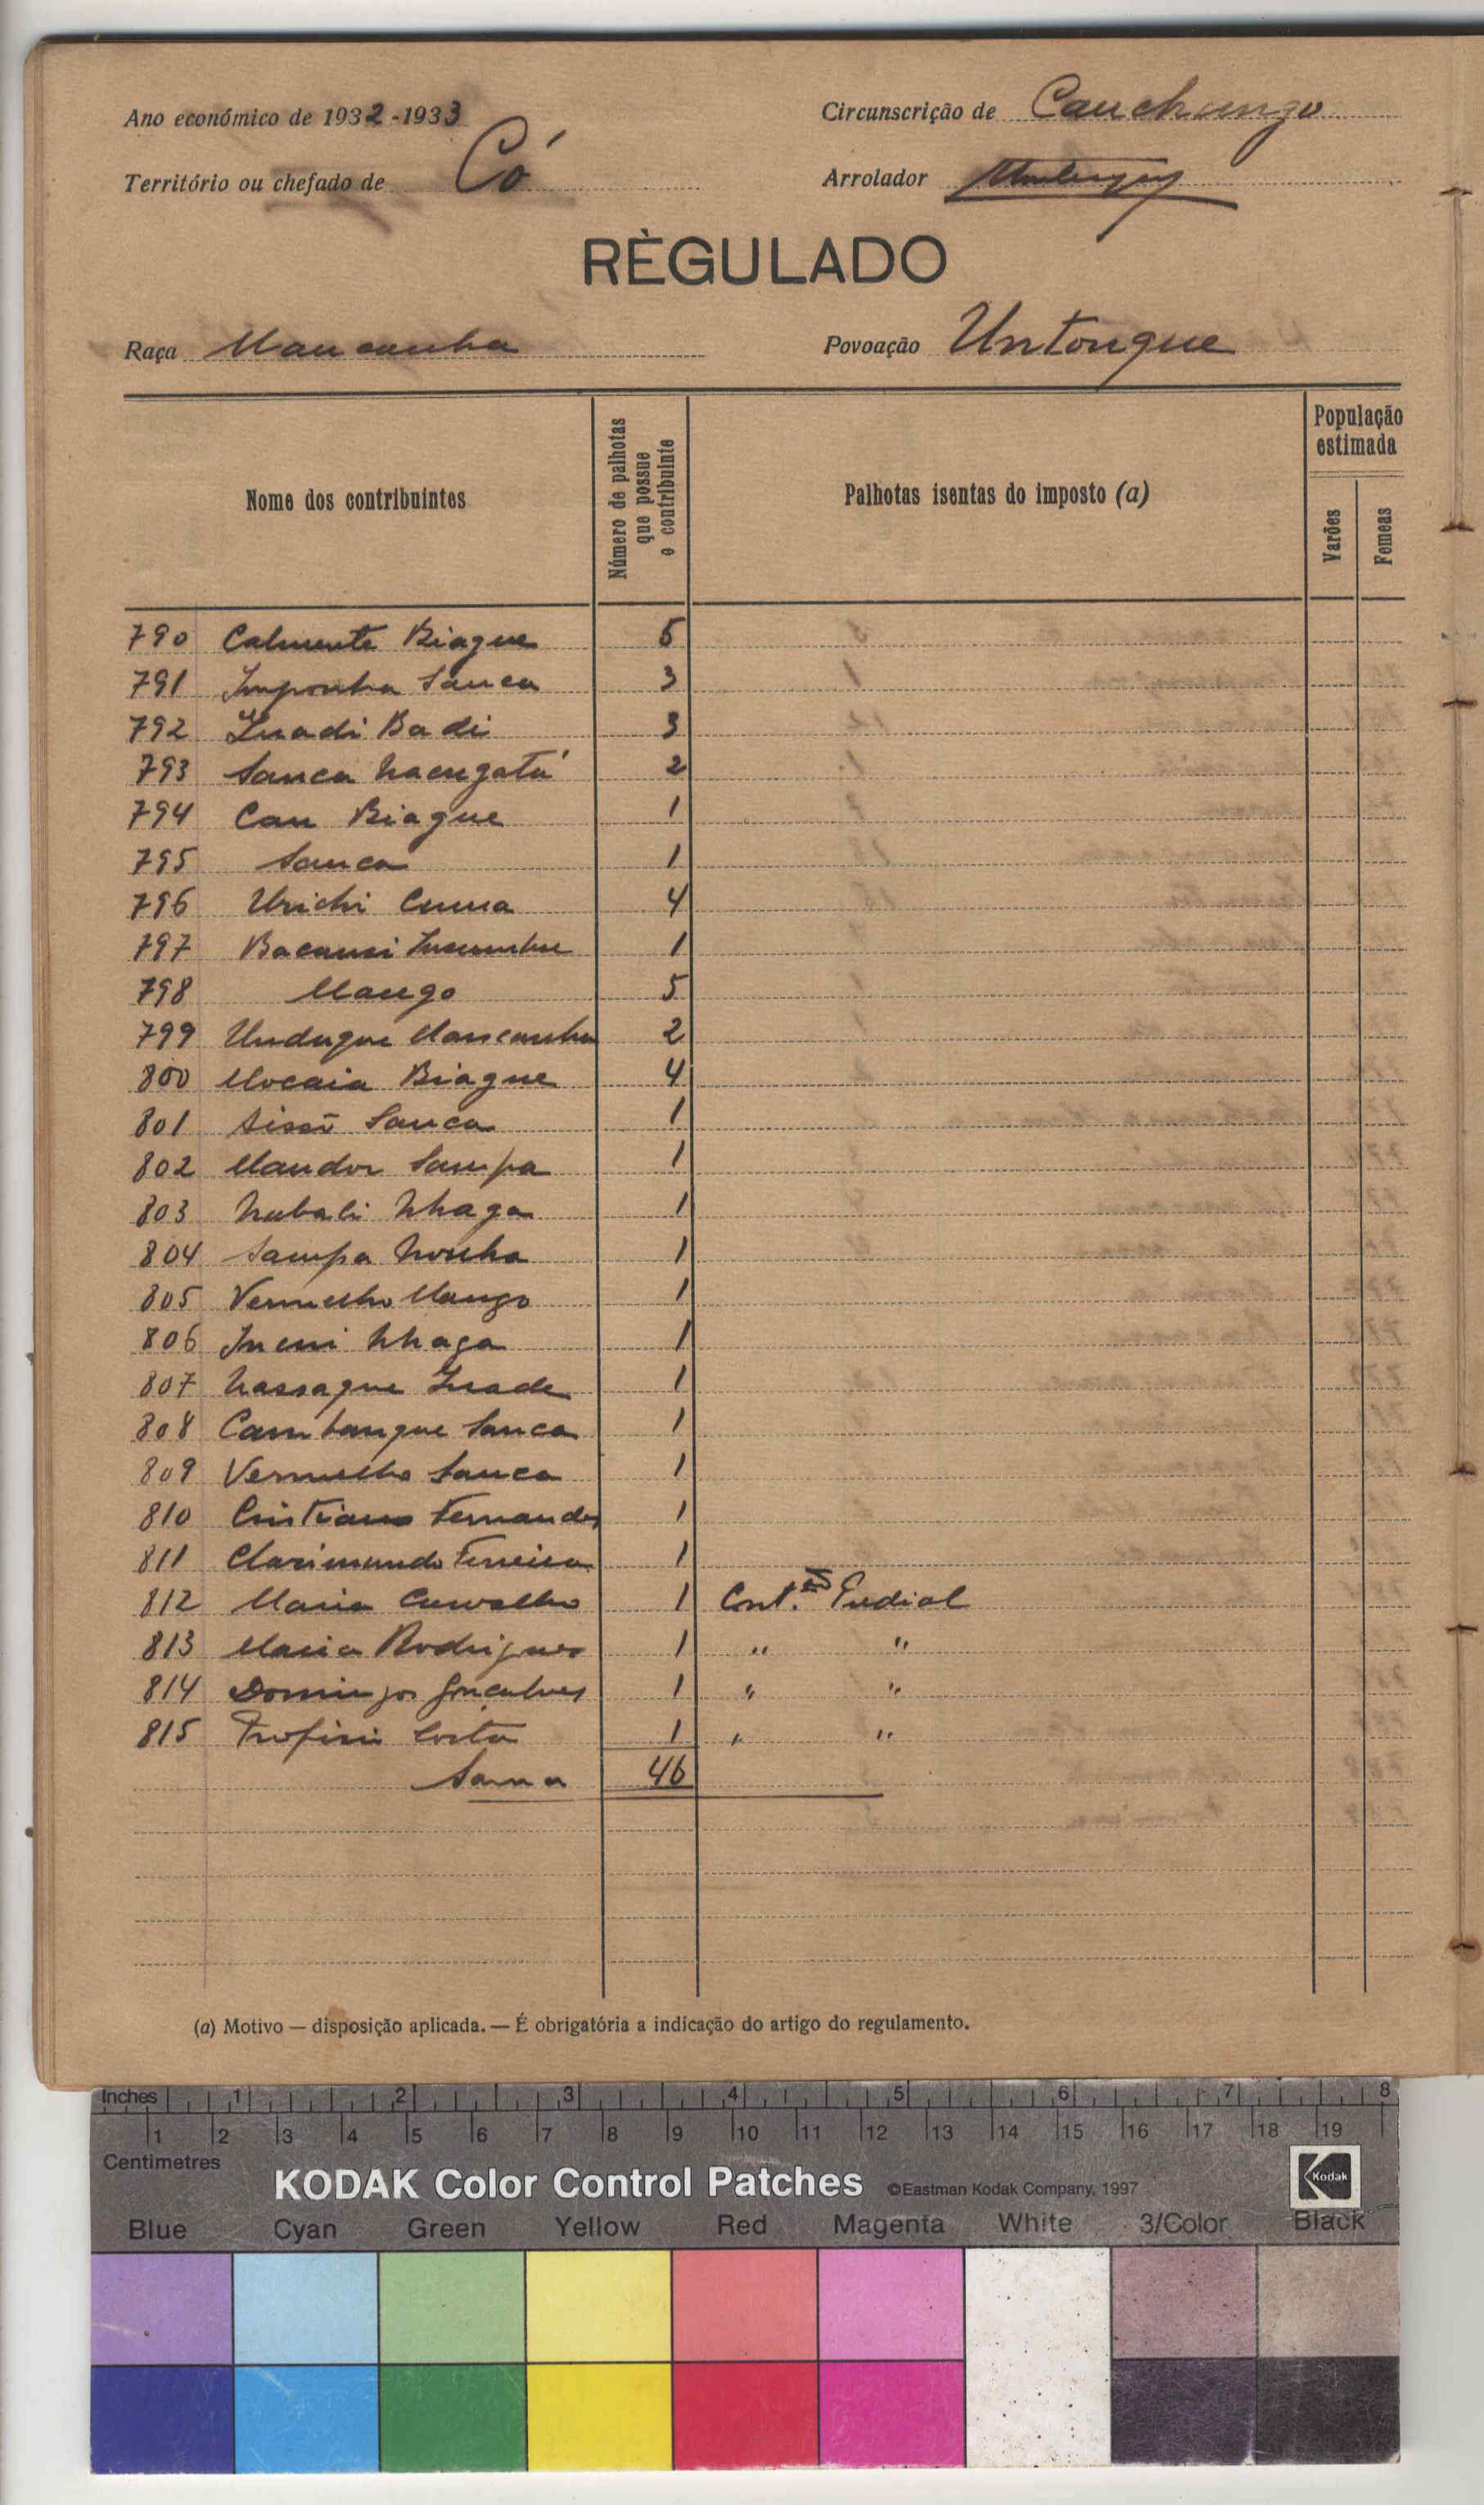 Ano económico de 1932-1933
Circunscrição de Canchungo
Território ou chefado de Có
Arrolador
RÈGULADO
Raça Mancanha
Povoação Untongue
Nome dos contribuintes
Número de palhotas que possue o contribuinte
Palhotas isentas do imposto (a)
População estimada
Varões
Femeas
790 Calmente Biague 5
791 Imponha Sanca 3
792 Badi 3
793 Sanca 2
794 Can Biague 1
795 Sanca 1
796 Urichi 4
797 Bacansi 1
798 Mango 5
799 Undugue Mancanha 2
800 Mocaia Biague 4
801 Sanca 1
802 Mandor Sampa 1
803 Nubali Nhaga 1
804 Sampa Nonha 1
805 Vermelho Mango 1
806 Nhaga 1
807 Nassague 1
808 Cambangue Sanca 1
809 Vermelho Sanca 1
810 Cristiano Fernandes 1
811 Clarimundo Ferreira 1
812 Maria Carvalho 1 Cont.ão Predial
813 Maria Rodrigues 1 " "
814 Domingos Gonçalves 1 " "
815 Costa 1 " "
Soma 46
(a) Motivo — disposição aplicada. — É obrigatória a indicação do artigo do regulamento.
Inches 1 2 3 4 5 6 7 8
1 2 3 4 5 6 7 8 9 10 11 12 13 14 15 16 17 18 19
Centimetres
KODAK Color Control Patches ©Eastman Kodak Company, 1997 Kodak
Blue Cyan Green Yellow Red Magenta White 3/Color Black